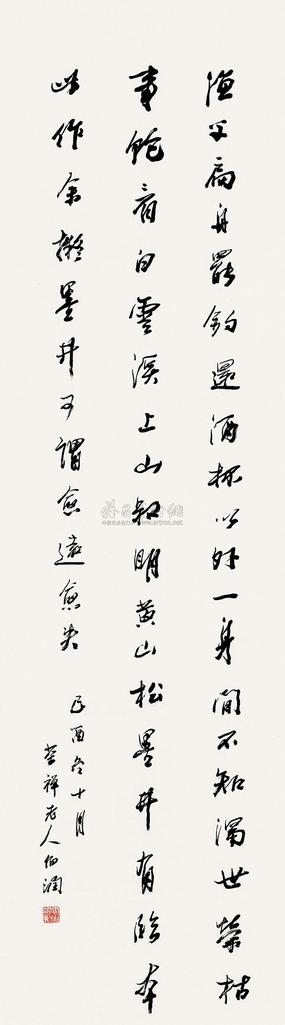 漁父扁舟罷釣還酒杯以外一身閒不知濁世榮枯
事飽看白雲溪上山叔明黃山松墨井有臨本
此作余擬墨井可謂愈遠愈失
己酉冬十月
茶禪老人伯潤